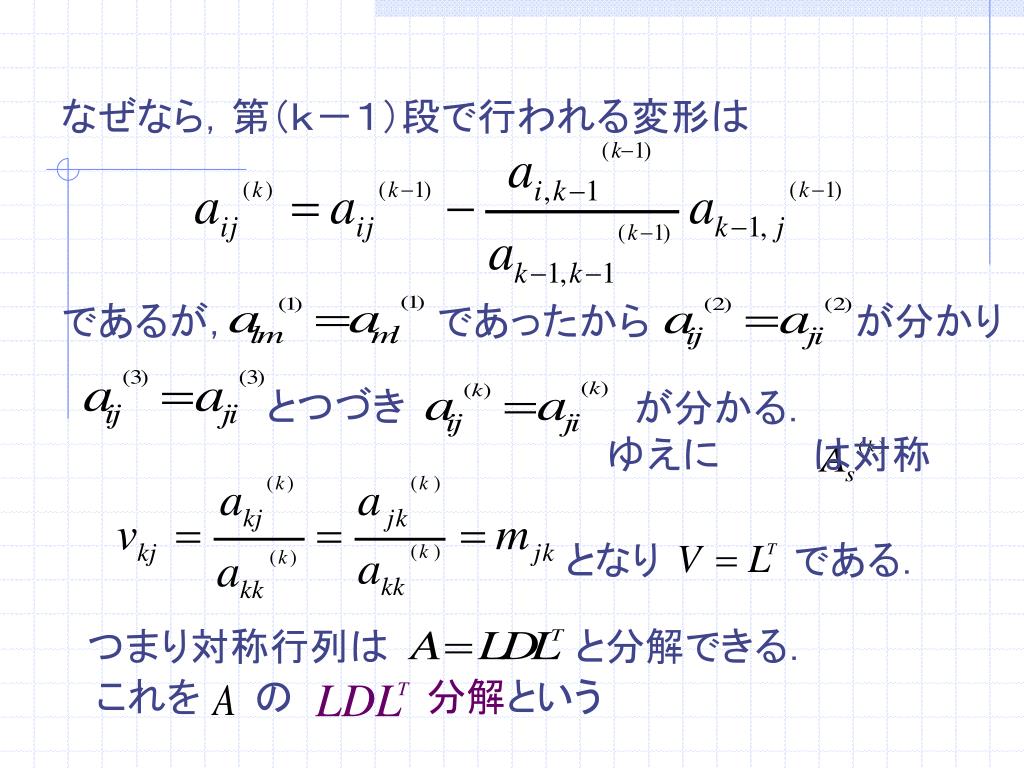 なぜなら，第（ｋ－１）段で行われる変形は
a_{ij}^{(k)} = a_{ij}^{(k-1)} - \frac{a_{i,k-1}^{(k-1)}}{a_{k-1,k-1}^{(k-1)}} a_{k-1,j}^{(k-1)}
であるが, a_{lm}^{(1)} = a_{ml}^{(1)} であったから a_{ij}^{(2)} = a_{ji}^{(2)} が分かり
a_{ij}^{(3)} = a_{ji}^{(3)} とつづき a_{ij}^{(k)} = a_{ji}^{(k)} が分かる．
ゆえに A_s は対称
v_{kj} = \frac{a_{kj}^{(k)}}{a_{kk}^{(k)}} = \frac{a_{jk}^{(k)}}{a_{kk}^{(k)}} = m_{jk} となり V = L^T である．
つまり対称行列は A = LDL^T と分解できる．
これを A の LDL^T 分解という